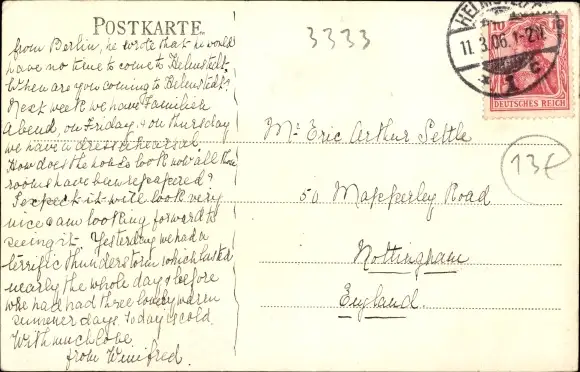 POSTKARTE
3333
from Berlin, he wrote that he would
have no time to come to Helmstedt.
When are you coming to Helmstedt?
Next week we have Familien
Abend, on Friday & on Thursday
we have a dress rehearsal.
How does the house look now all the
rooms have been repapered?
I expect it will look very
nice & am looking forward to
seeing it. Yesterday we had a
terrific thunderstorm which lasted
nearly the whole day & before
we had had three lovely warm
summer days. Today is cold.
With much love
from Winifred.
HELMSTEDT
11.3.06. 1-2N.
* 1 c
10 10
DEUTSCHES REICH
Mr Eric Arthur Settle
50 Mapperley Road
Nottingham
England.
13€